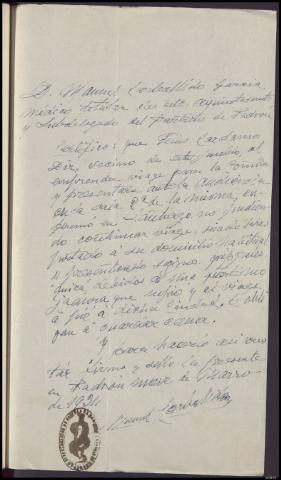 D. Manuel Carballido García
Médico titular de este ayuntamiento
y Subdelegado del partido de Padrón
Certifico: que
vecino de este pueblo, al
emprender viaje para la Coruña
y presentarse ante la Audiencia
en la sala 2ª de la misma, en
fermó en Santiago no pudien
do continuar viaje, siendo tras
portado á su domicilio habitual
y presentando
debidos á una
que sufrió y el viaje
á pié á dicha Ciudad, le obli
gan á guardar cama.
Y para hacerlo así cons
tar firmo y sello la presente
en Padrón nueve de Marzo
de 1924
Manuel Carballido